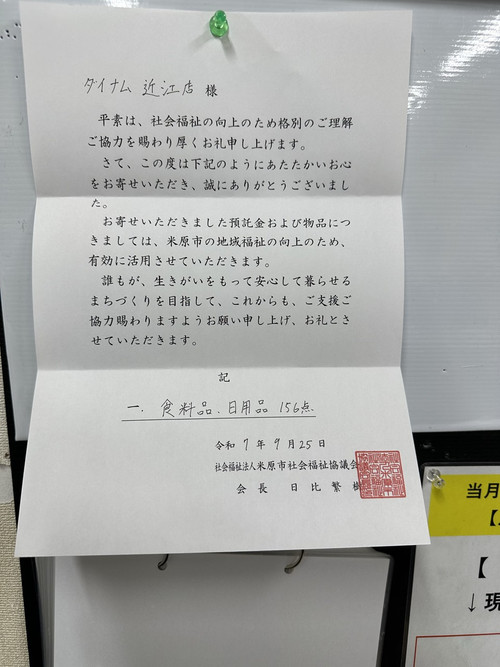 ダイナム 近江店 様
平素は、社会福祉の向上のため格別のご理解
ご協力を賜わり厚くお礼申し上げます。
さて、この度は下記のようにあたたかいお心
をお寄せいただき、誠にありがとうございまし
た。
お寄せいただきました預託金および物品につ
きましては、米原市の地域福祉の向上のため、
有効に活用させていただきます。
誰もが、生きがいをもって安心して暮らせる
まちづくりを目指して、これからも、ご支援ご
協力賜わりますようお願い申し上げ、お礼とさ
せていただきます。
記
一. 食料品、日用品 156点
令和 7 年 9 月 25 日
社会福祉法人 米原市社会福祉協議会
会 長 日 比 繁 樹
当月
【
【
↓現